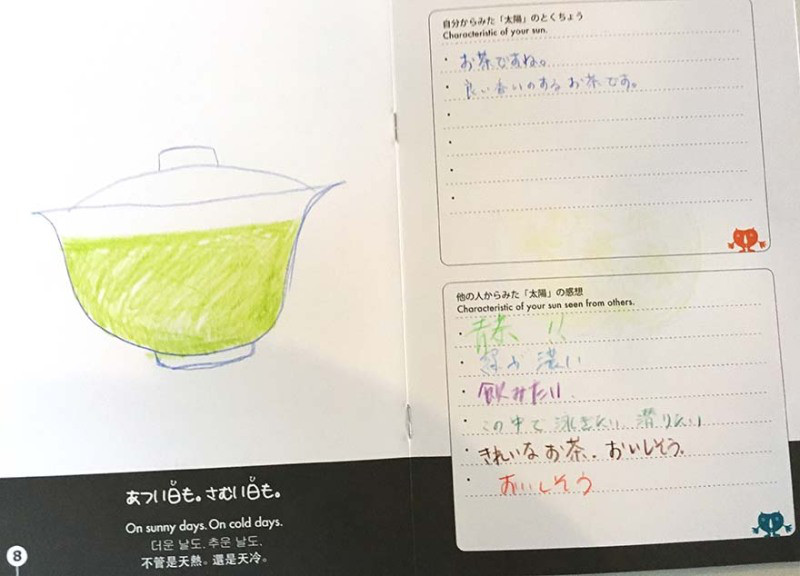 あつい日も。さむい日も。
On sunny days. On cold days.
더운 날도. 추운 날도.
不管是天熱。還是天冷。
8
自分からみた「太陽」のとくちょう
Characteristic of your sun.
・お茶ですね。
・良い香いのするお茶です。
他の人からみた「太陽」の感想
Characteristic of your sun seen from others.
・!!
・緑が濃い
・飲みたい
・この中で泳ぎたい、潜りたい
・きれいなお茶、おいしそう。
・おいしそう